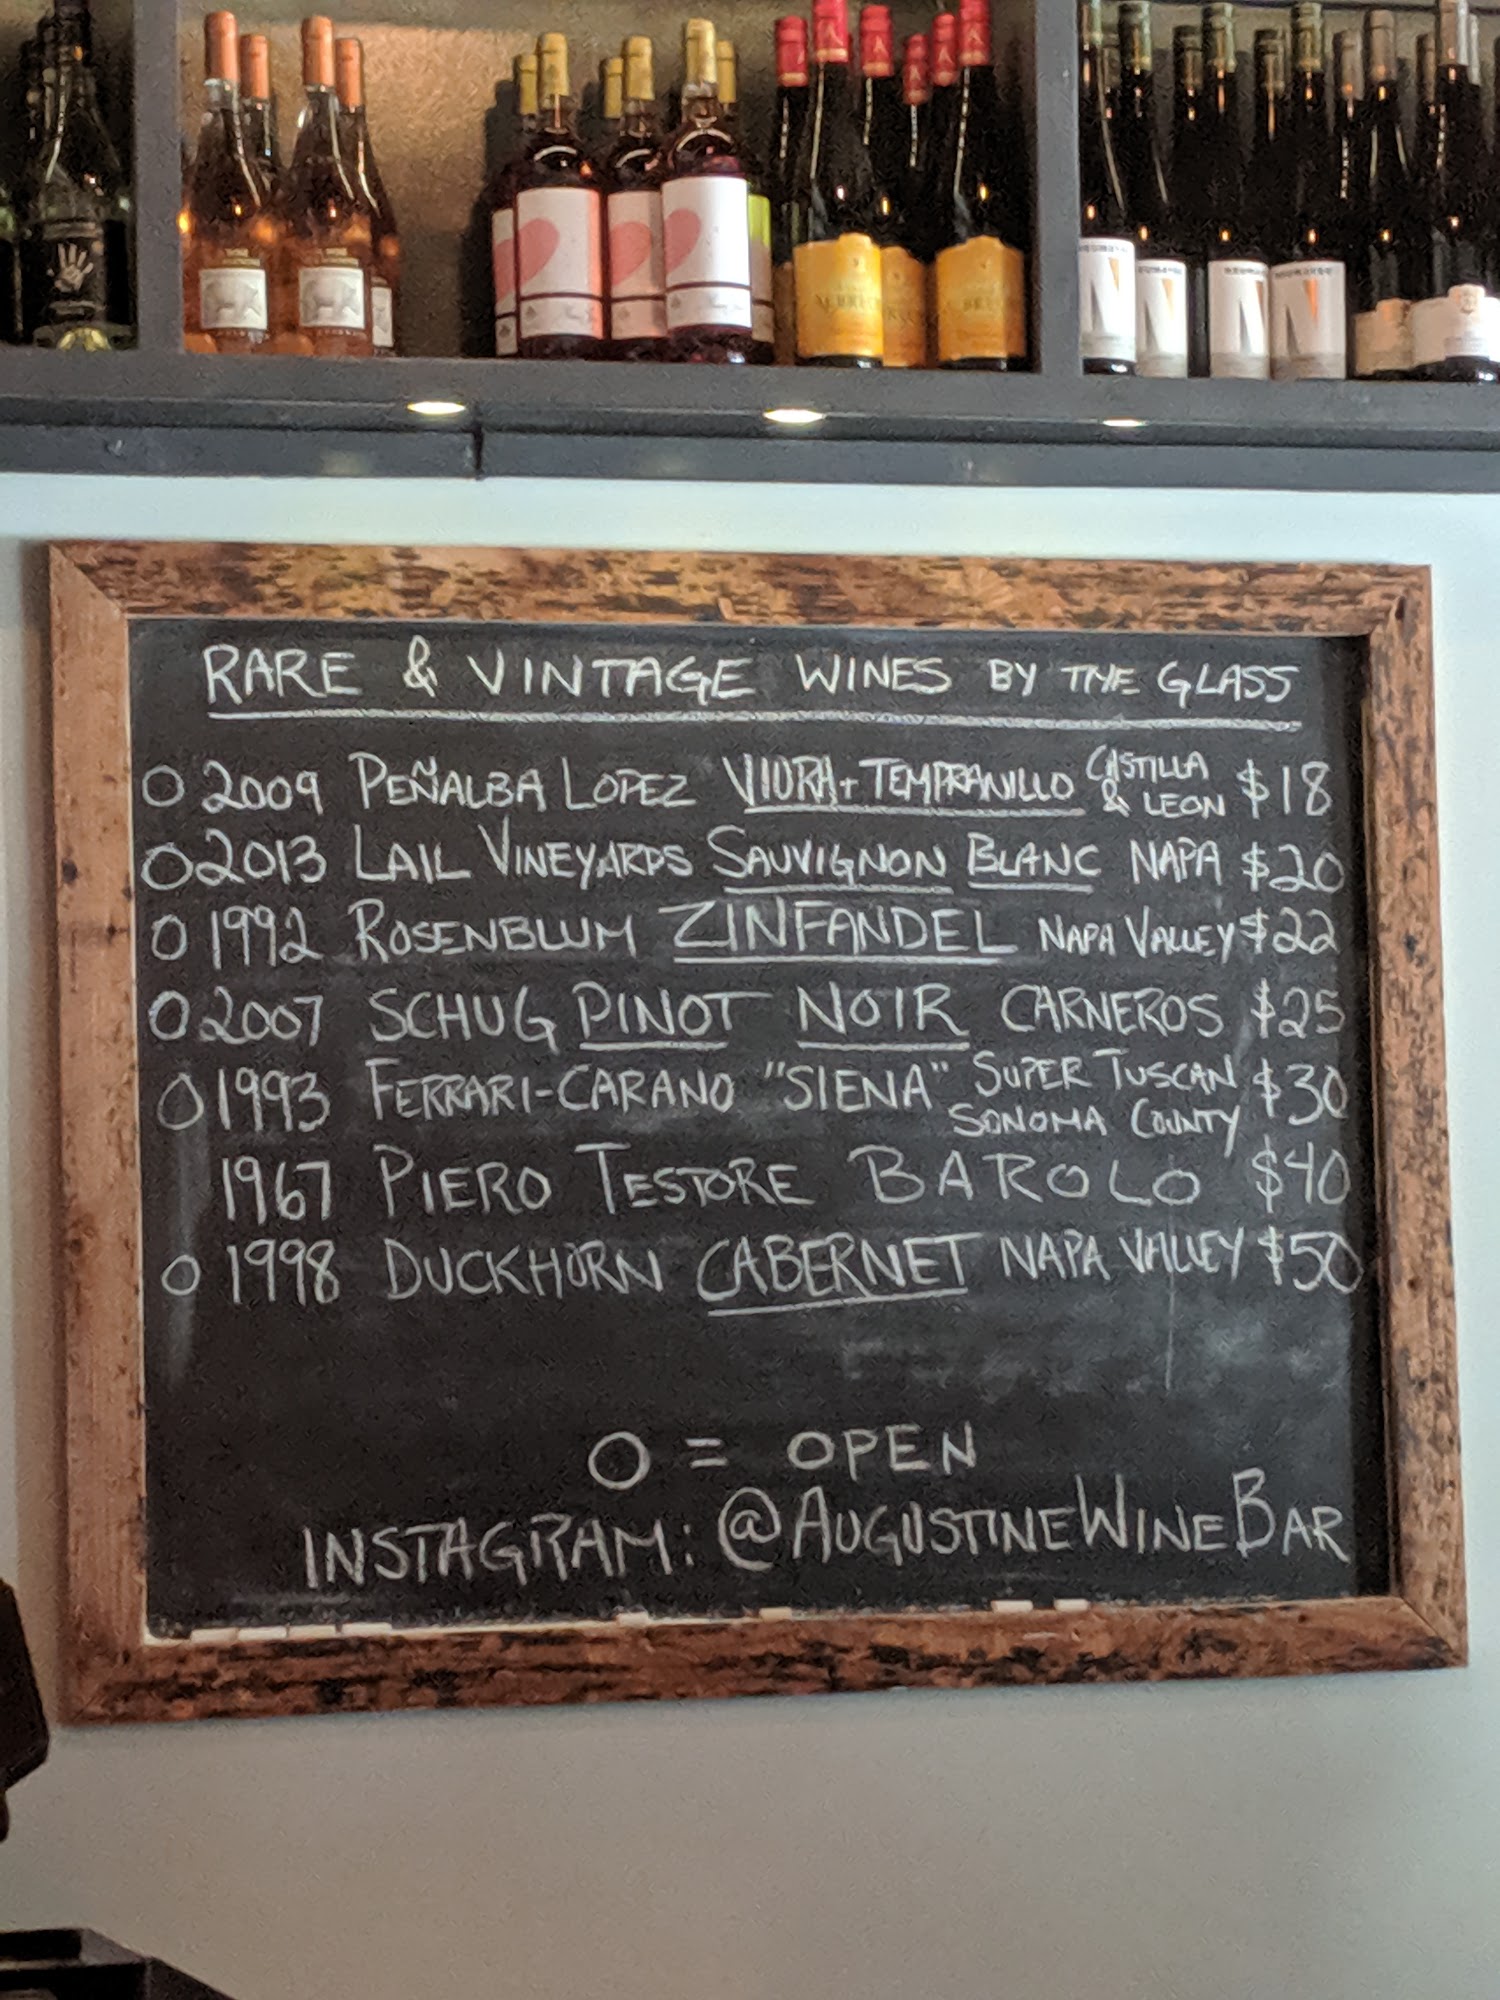 RARE & VINTAGE WINES BY THE GLASS
O 2009 PEÑALBA LOPEZ VIURA + TEMPRANILLO CASTILLA & LEON $18
O 2013 LAIL VINEYARDS SAUVIGNON BLANC NAPA $20
O 1992 ROSENBLUM ZINFANDEL NAPA VALLEY $22
O 2007 SCHUG PINOT NOIR CARNEROS $25
O 1993 FERRARI-CARANO "SIENA" SUPER TUSCAN SONOMA COUNTY $30
1967 PIERO TESTORE BAROLO $40
O 1998 DUCKHORN CABERNET NAPA VALLEY $50
O = OPEN
INSTAGRAM: @AUGUSTINEWINEBAR